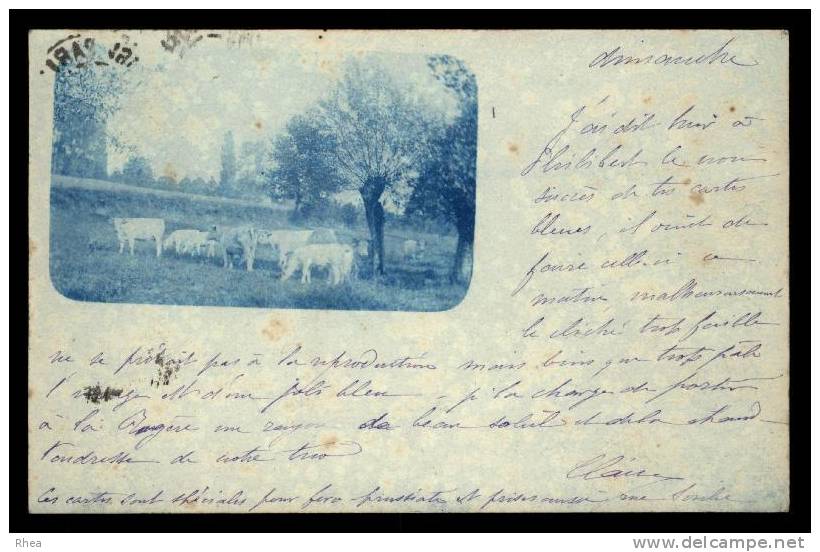 dimanche
J'ai dit hier à
Philibert le
succès de tes cartes
bleues, il vient de
faire celle-ci ce
matin malheureusement
le cliché trop faible
ne se prêtait pas à la reproduction mais bien que trop pâle
l'image est d'un joli bleu - je la charge de porter
à la Rogère un rayon de beau soleil et de la chaude
tendresse de notre trio
Claire
Ces cartes sont spéciales pour ferro-prussiate et prises aussi rue
Rhea
http://www.delcampe.net